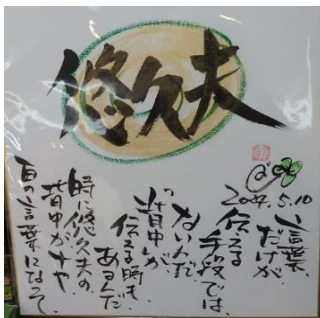 悠久夫
2007.5.10
言葉
だけが
伝える手段では
ないんだ
背中が
伝える時も
あるんだ
時に悠久夫の
背中がナヤ
百の言葉になって